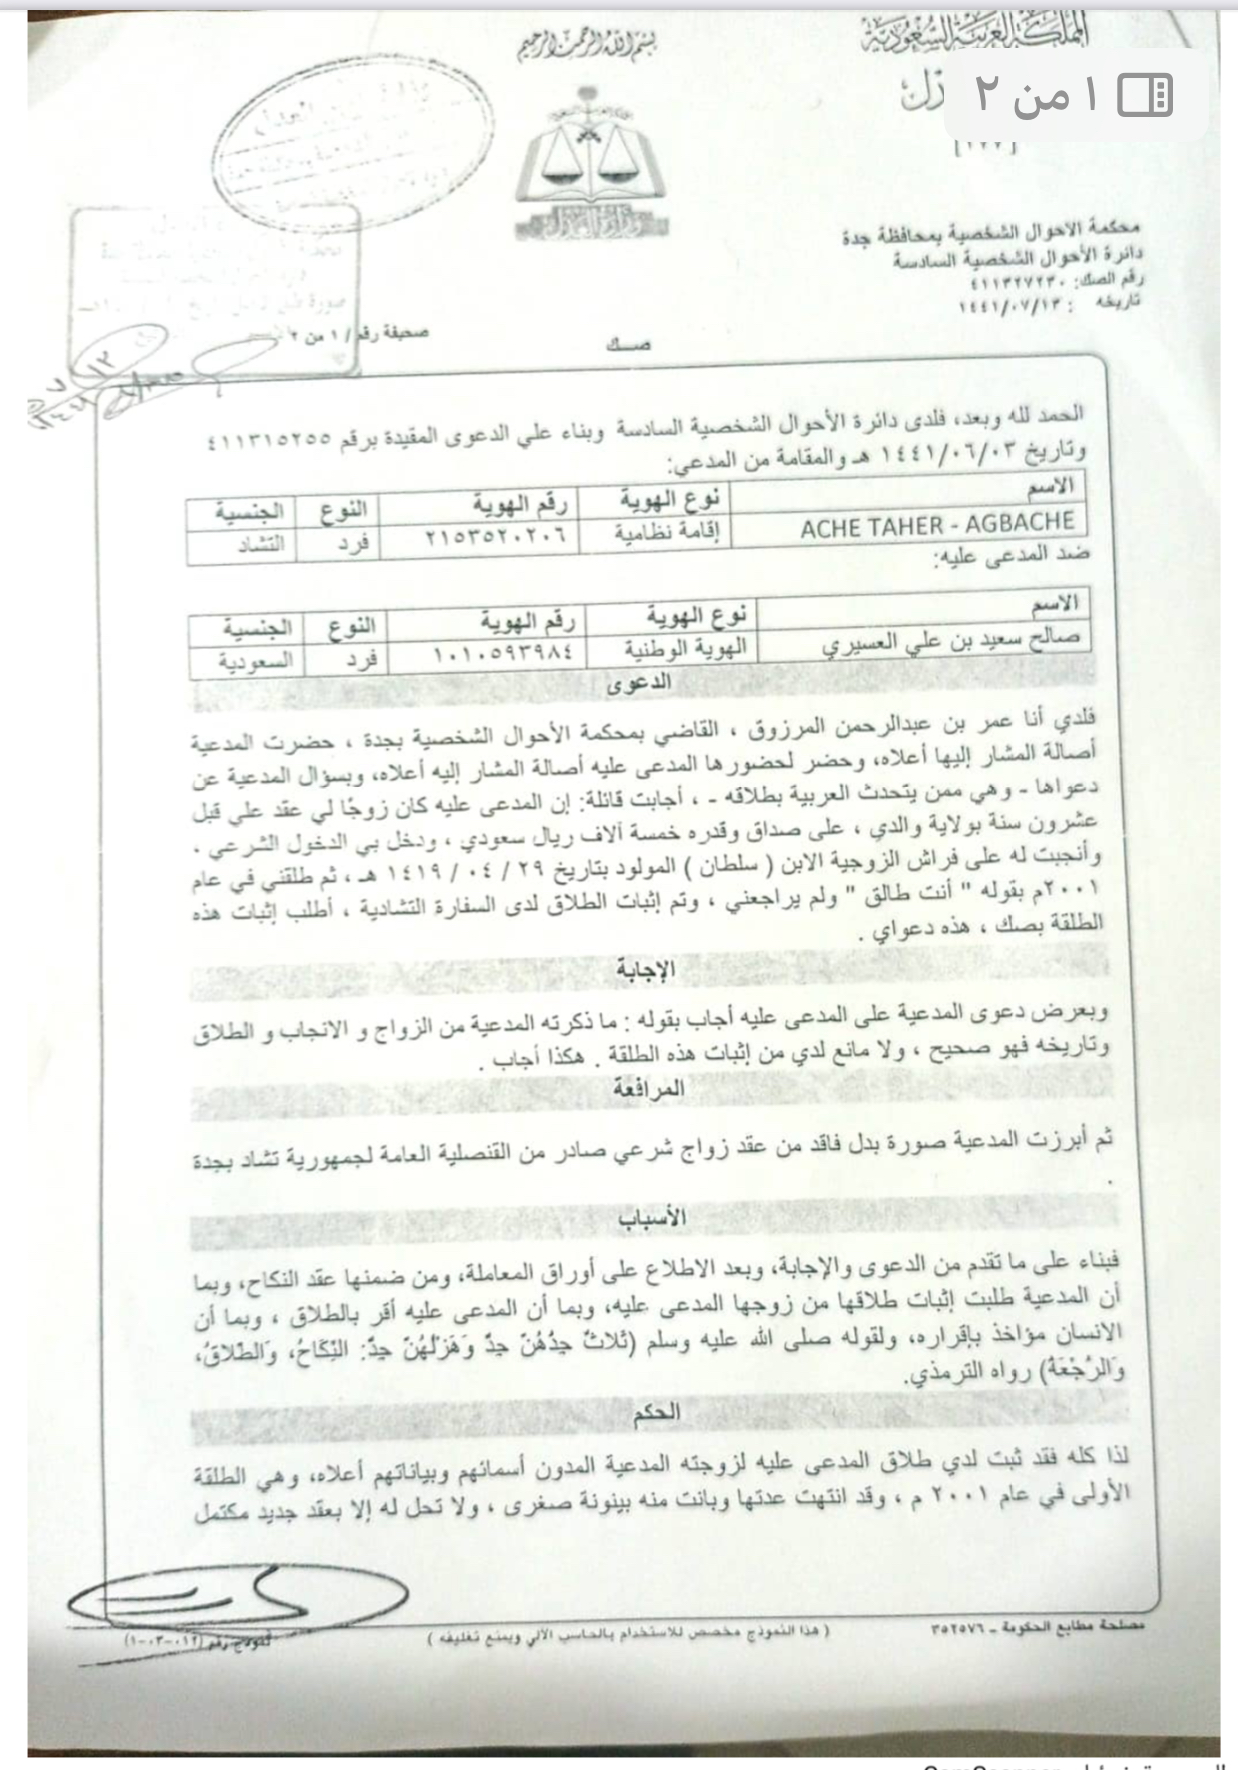 المملكة العربية السعودية
بسم الله الرحمن الرحيم
١ من ٢
[٢٧٧]
وزارة العدل
محكمة الاحوال الشخصية بمحافظة جدة
دائرة الأحوال الشخصية السادسة
رقم الصك: ٤١١٣٢٧٢٣٠
تاريخه : ١٤٤١/٠٧/١٣
صحيفة رقم/ ١ من ٢
صك
الحمد لله وبعد، فلدى دائرة الأحوال الشخصية السادسة وبناء علي الدعوى المقيدة برقم ٤١١٣١٥٢٥٥
وتاريخ ١٤٤١/٠٦/٠٣ هـ والمقامة من المدعي:
الاسم نوع الهوية رقم الهوية النوع الجنسية
ACHE TAHER - AGBACHE إقامة نظامية ٢١٥٣٥٢٠٢٠٦ فرد التشاد
ضد المدعى عليه:
الاسم نوع الهوية رقم الهوية النوع الجنسية
صالح سعيد بن علي العسيري الهوية الوطنية ١٠١٠٥٩٣٩٨٤ فرد السعودية
الدعوى
فلدي أنا عمر بن عبدالرحمن المرزوق ، القاضي بمحكمة الأحوال الشخصية بجدة ، حضرت المدعية
أصالة المشار إليها أعلاه، وحضر لحضورها المدعى عليه أصالة المشار إليه أعلاه، وبسؤال المدعية عن
دعواها - وهي ممن يتحدث العربية بطلاقه - ، أجابت قائلة: إن المدعى عليه كان زوجًا لي عقد علي قبل
عشرون سنة بولاية والدي ، على صداق وقدره خمسة آلاف ريال سعودي ، ودخل بي الدخول الشرعي ،
وأنجبت له على فراش الزوجية الابن ( سلطان ) المولود بتاريخ ٢٩ / ٠٤ / ١٤١٩ هـ ، ثم طلقني في عام
٢٠٠١م بقوله " أنت طالق " ولم يراجعني ، وتم إثبات الطلاق لدى السفارة التشادية ، أطلب إثبات هذه
الطلقة بصك ، هذه دعواي .
الإجابة
وبعرض دعوى المدعية على المدعى عليه أجاب بقوله : ما ذكرته المدعية من الزواج و الانجاب و الطلاق
وتاريخه فهو صحيح ، ولا مانع لدي من إثبات هذه الطلقة . هكذا أجاب .
المرافعة
ثم أبرزت المدعية صورة بدل فاقد من عقد زواج شرعي صادر من القنصلية العامة لجمهورية تشاد بجدة
.
الأسباب
فبناء على ما تقدم من الدعوى والإجابة، وبعد الاطلاع على أوراق المعاملة، ومن ضمنها عقد النكاح، وبما
أن المدعية طلبت إثبات طلاقها من زوجها المدعى عليه، وبما أن المدعى عليه أقر بالطلاق ، وبما أن
الانسان مؤاخذ بإقراره، ولقوله صلى الله عليه وسلم (ثَلاثٌ جِدُّهُنَّ جِدٌّ وَهَزْلُهُنَّ جِدٌّ: النِّكَاحُ، وَالطَّلاقُ،
وَالرَّجْعَةُ) رواه الترمذي.
الحكم
لذا كله فقد ثبت لدي طلاق المدعى عليه لزوجته المدعية المدون أسمائهم وبياناتهم أعلاه، وهي الطلقة
الأولى في عام ٢٠٠١ م ، وقد انتهت عدتها وبانت منه بينونة صغرى ، ولا تحل له إلا بعقد جديد مكتمل
مصلحة مطابع الحكومة - ٣٥٢٥٧٦
( هذا النموذج مخصص للاستخدام بالحاسب الآلي ويمنع تغليفه )
نموذج رقم (١-٠٣-٠١٢)